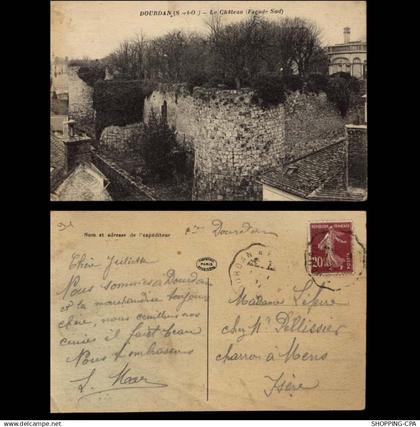 DOURDAN (S.-&-O.) — Le Château (Façade Sud)
Nom et adresse de l'expéditeur
Dourdan
PARIS
DOURDAN
20
POSTES
Chère Julienne
Nous sommes à Dourdan
et la marchandise toujours
chère, nous cueillons nos
il fait beau
Nous t'embrassons
Madame
chez Mr Pellissier
charron à Mens
Isère
WWW.SHOPPING-CPA.COM
SHOPPING-CPA